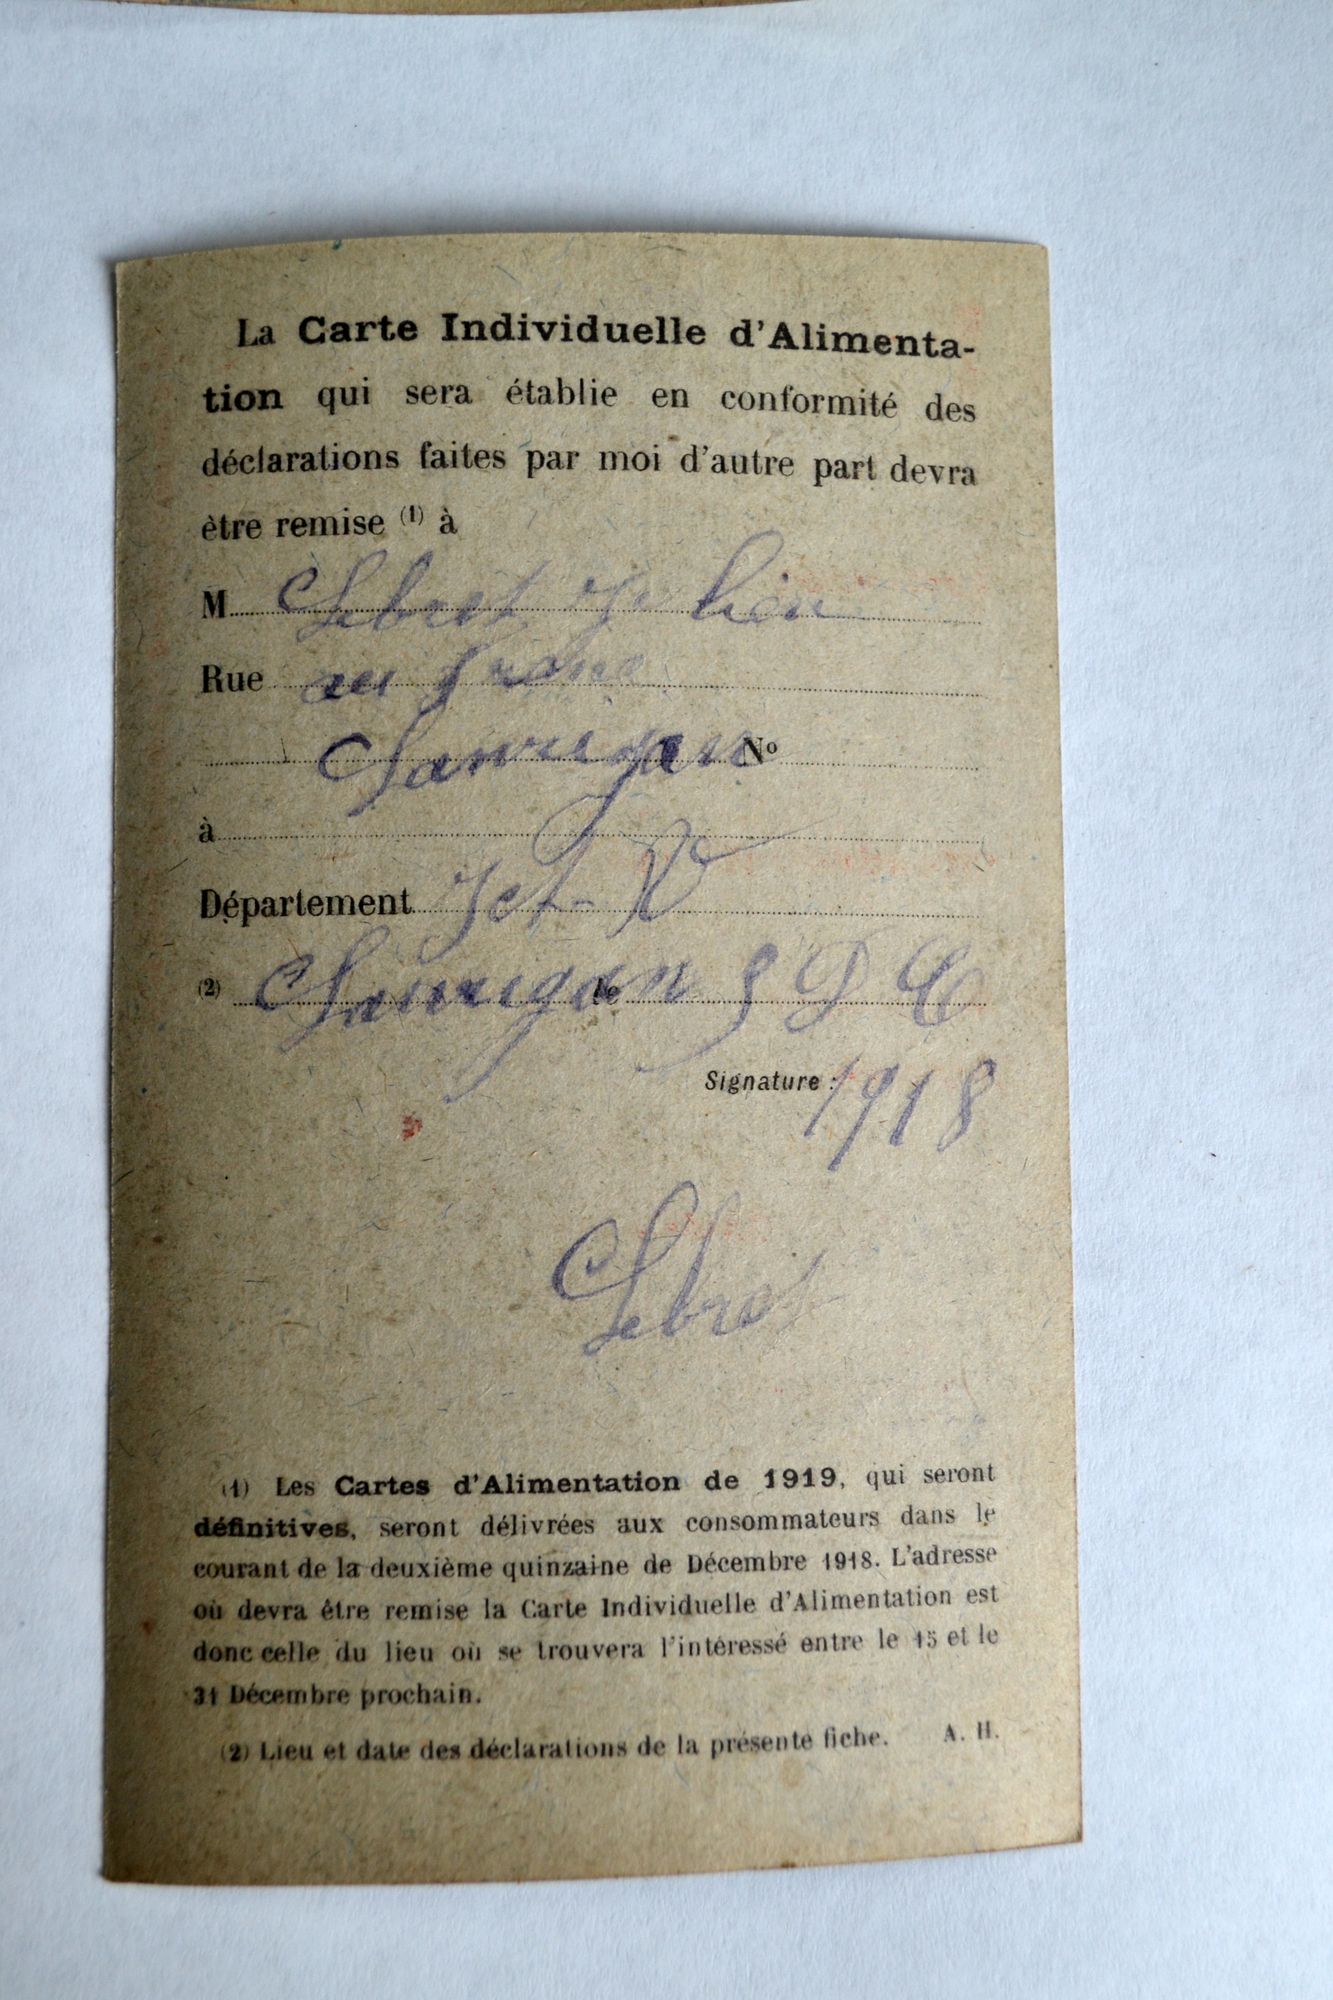 La Carte Individuelle d'Alimenta-
tion qui sera établie en conformité des
déclarations faites par moi d'autre part devra
être remise (1) à
M Lebret Julien
Rue au
Nº
à
Département Ict-V
(2) le 9 DC
Signature :
1918
Lebret
(1) Les Cartes d'Alimentation de 1919, qui seront
définitives, seront délivrées aux consommateurs dans le
courant de la deuxième quinzaine de Décembre 1918. L'adresse
où devra être remise la Carte Individuelle d'Alimentation est
donc celle du lieu où se trouvera l'intéressé entre le 15 et le
31 Décembre prochain.
(2) Lieu et date des déclarations de la présente fiche. A. H.